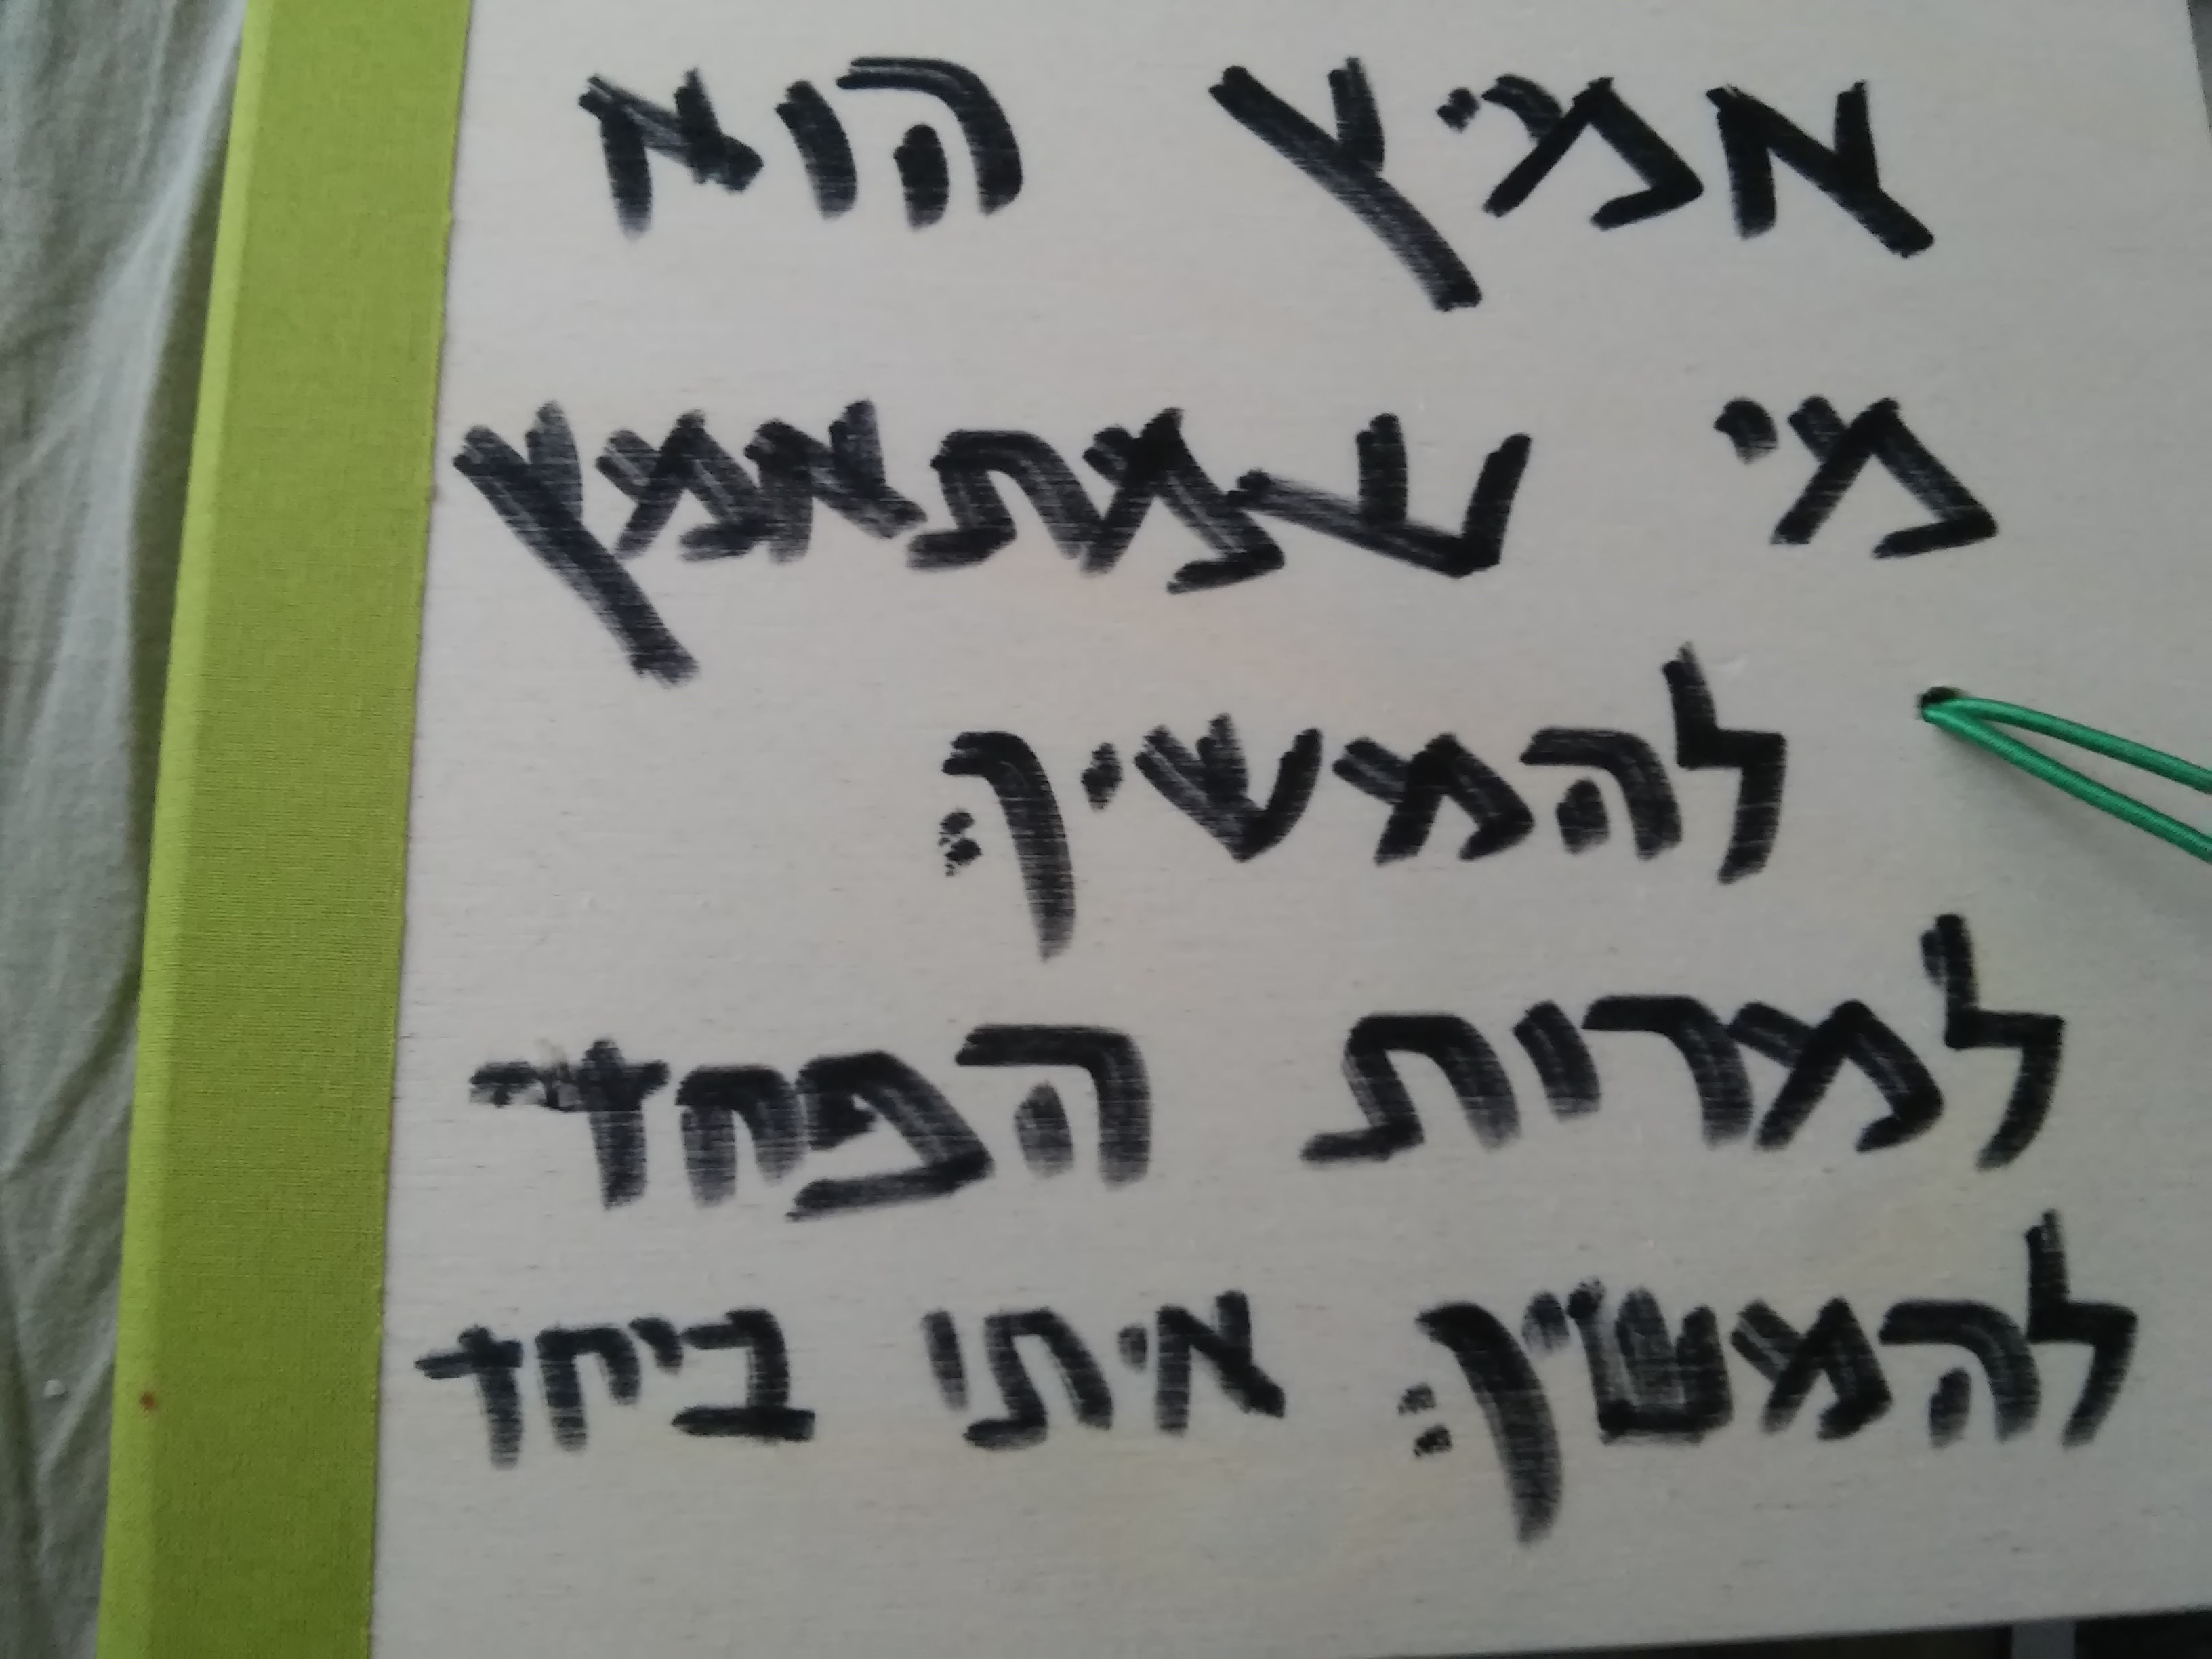 אמיץ הוא
מי שמתאמץ
להמשיך
למרות הפחד
להמשיך איתי ביחד